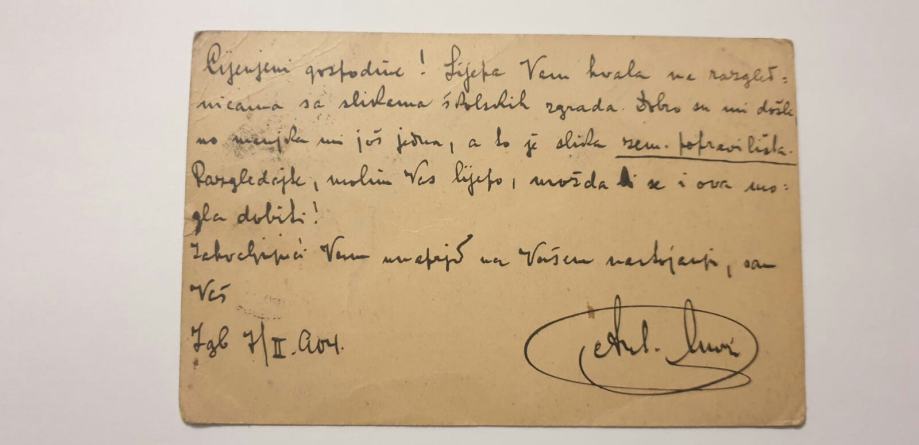 Cijenjeni gospodine! Lijepa Vam hvala na razgled=
nicama sa slikama školskih zgrada. Dobro su mi došle
no manjka mi još jedna, a to je slika zem. popravilišta.
Razgledajte, molim Vas lijepo, možda bi se i ova mo=
gla dobiti!
Zahvaljujući Vam unaprijed na Vašem nastojanju, sam
Vaš
Zgb 7/II. 904.
Ant.